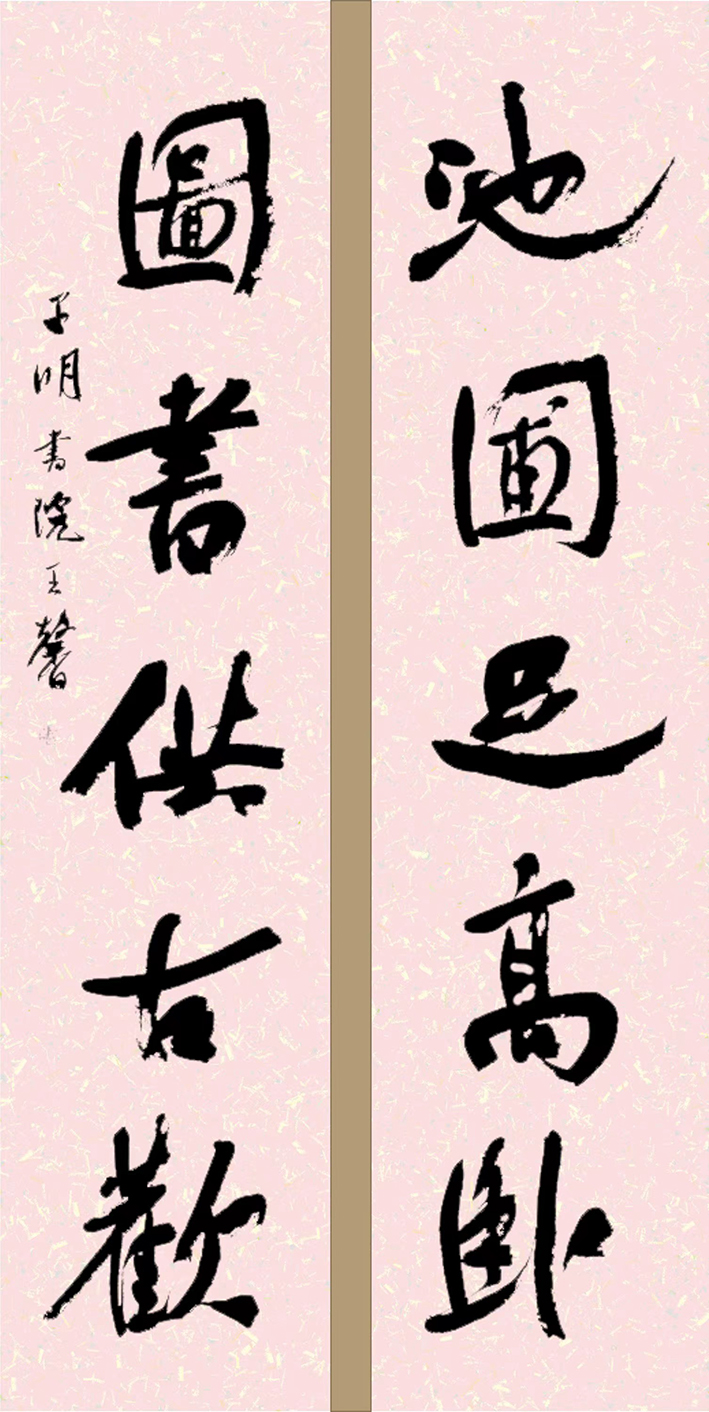 池圃足高卧
圖書供古歡
子明書院王馨